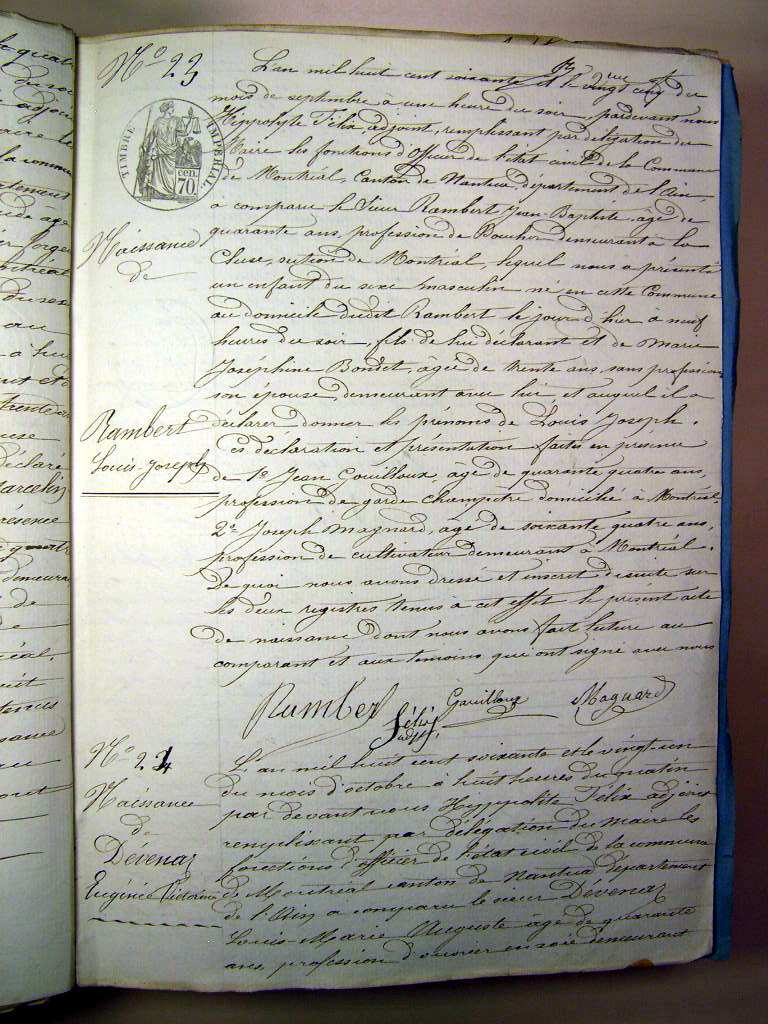 N° 23
TIMBRE IMPÉRIAL
70 cen.
Naissance
de
Rambert
Louis-Joseph
L'an mil huit cent soixante et le vingt cinq du
mois de septembre à une heure du soir, pardevant nous
Hippolyte Félix adjoint, remplissant par délégation du
Maire les fonctions d'Officier de l'état civil de la Commune
de Montréal, Canton de Nantua, département de l'ain,
a comparu le Sieur Rambert Jean-Baptiste, âgé de
quarante ans, profession de Boucher demeurant à la
Cluse, section de Montréal, lequel nous a présenté
un enfant du sexe masculin né en cette Commune
au domicile dudit Rambert le jour d'hier à neuf
heures du soir, fils de lui déclarant et de Marie
Joséphine Bondet, âgée de trente ans, sans profession
son épouse, demeurant avec lui, et auquel il a
déclarer donner les prénoms de Louis Joseph.
Ces déclaration et présentation faites en présence
de 1° Jean Gouilloux, âgé de quarante quatre ans,
profession de garde champêtre domicilié à Montréal,
2° Joseph Magnard, âgé de soixante quatre ans,
profession de cultivateur demeurant à Montréal.
De quoi nous avons dressé et inscrit desuite sur
les deux registres tenus a cet effet le présent acte
de naissance dont nous avons fait lecture au
comparant et aux temoins qui ont signé avec nous
Rambert
Félix
adjt.
Gouilloux
Magnard
N° 24
Naissance
de
Dévenaz
Eugénie Victorine
L'an mil huit cent soixante et le vingt-un
du mois d'octobre à huit heures du matin
par devant nous Hippolite Félix adjoint
remplissant par délégation du maire les
fonctions d'officier de l'état civil de la commune
de Montréal canton de Nantua département
de l'Ain a comparu le sieur Dévenaz
Louis-Marie Auguste âgé de quarante
ans, profession d'ouvrier en soie demeurant